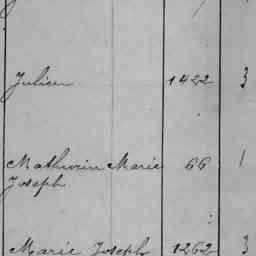 Julien 1422 3
Mathurin Marie 66 1
Joseph
Marie Joseph 1262 3